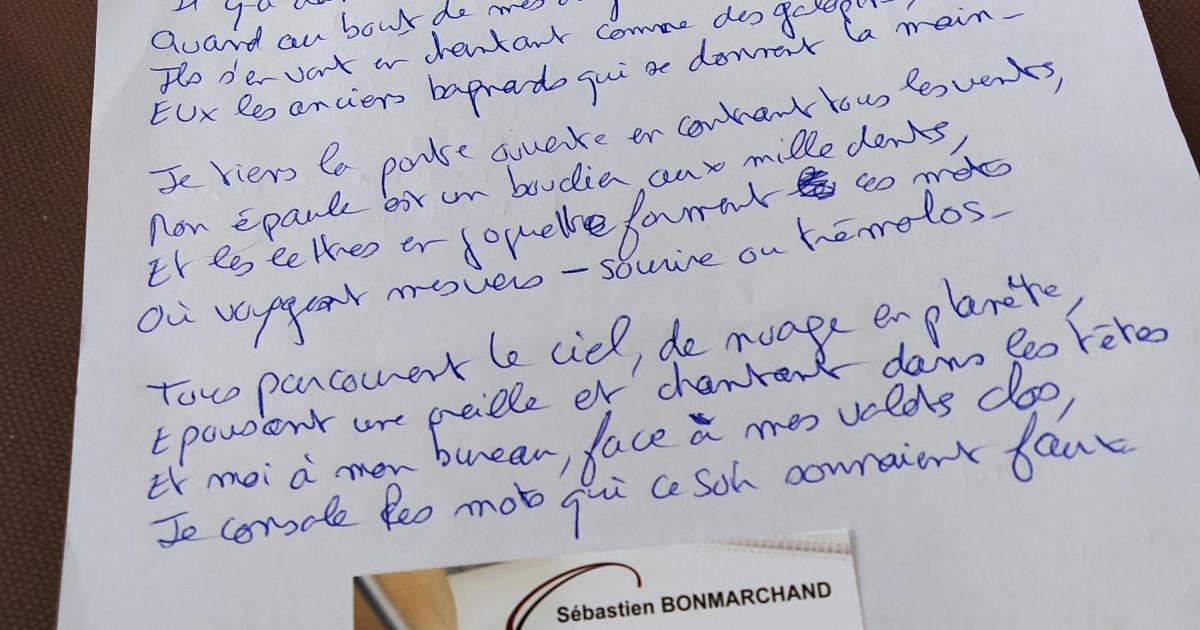 Il y a
Quand au bout de mes
Ils s'en vont en chantant comme des galopins,
EUX les anciers bagnards qui se donnent la main –
Je tiens la porte ouverte en contrant tous les vents,
Mon épaule est un bouclier aux mille dents,
Et les lettres en goguette forment ces mots
Où voyagent mes vers – sourire ou trémolos –
Tous parcourent le ciel, de nuage en planète,
Epousent une oreille et chantent dans les têtes
Et moi à mon bureau, face à mes volets clos,
Je console les mots qui ce soir sonnaient faux
Sébastien BONMARCHAND